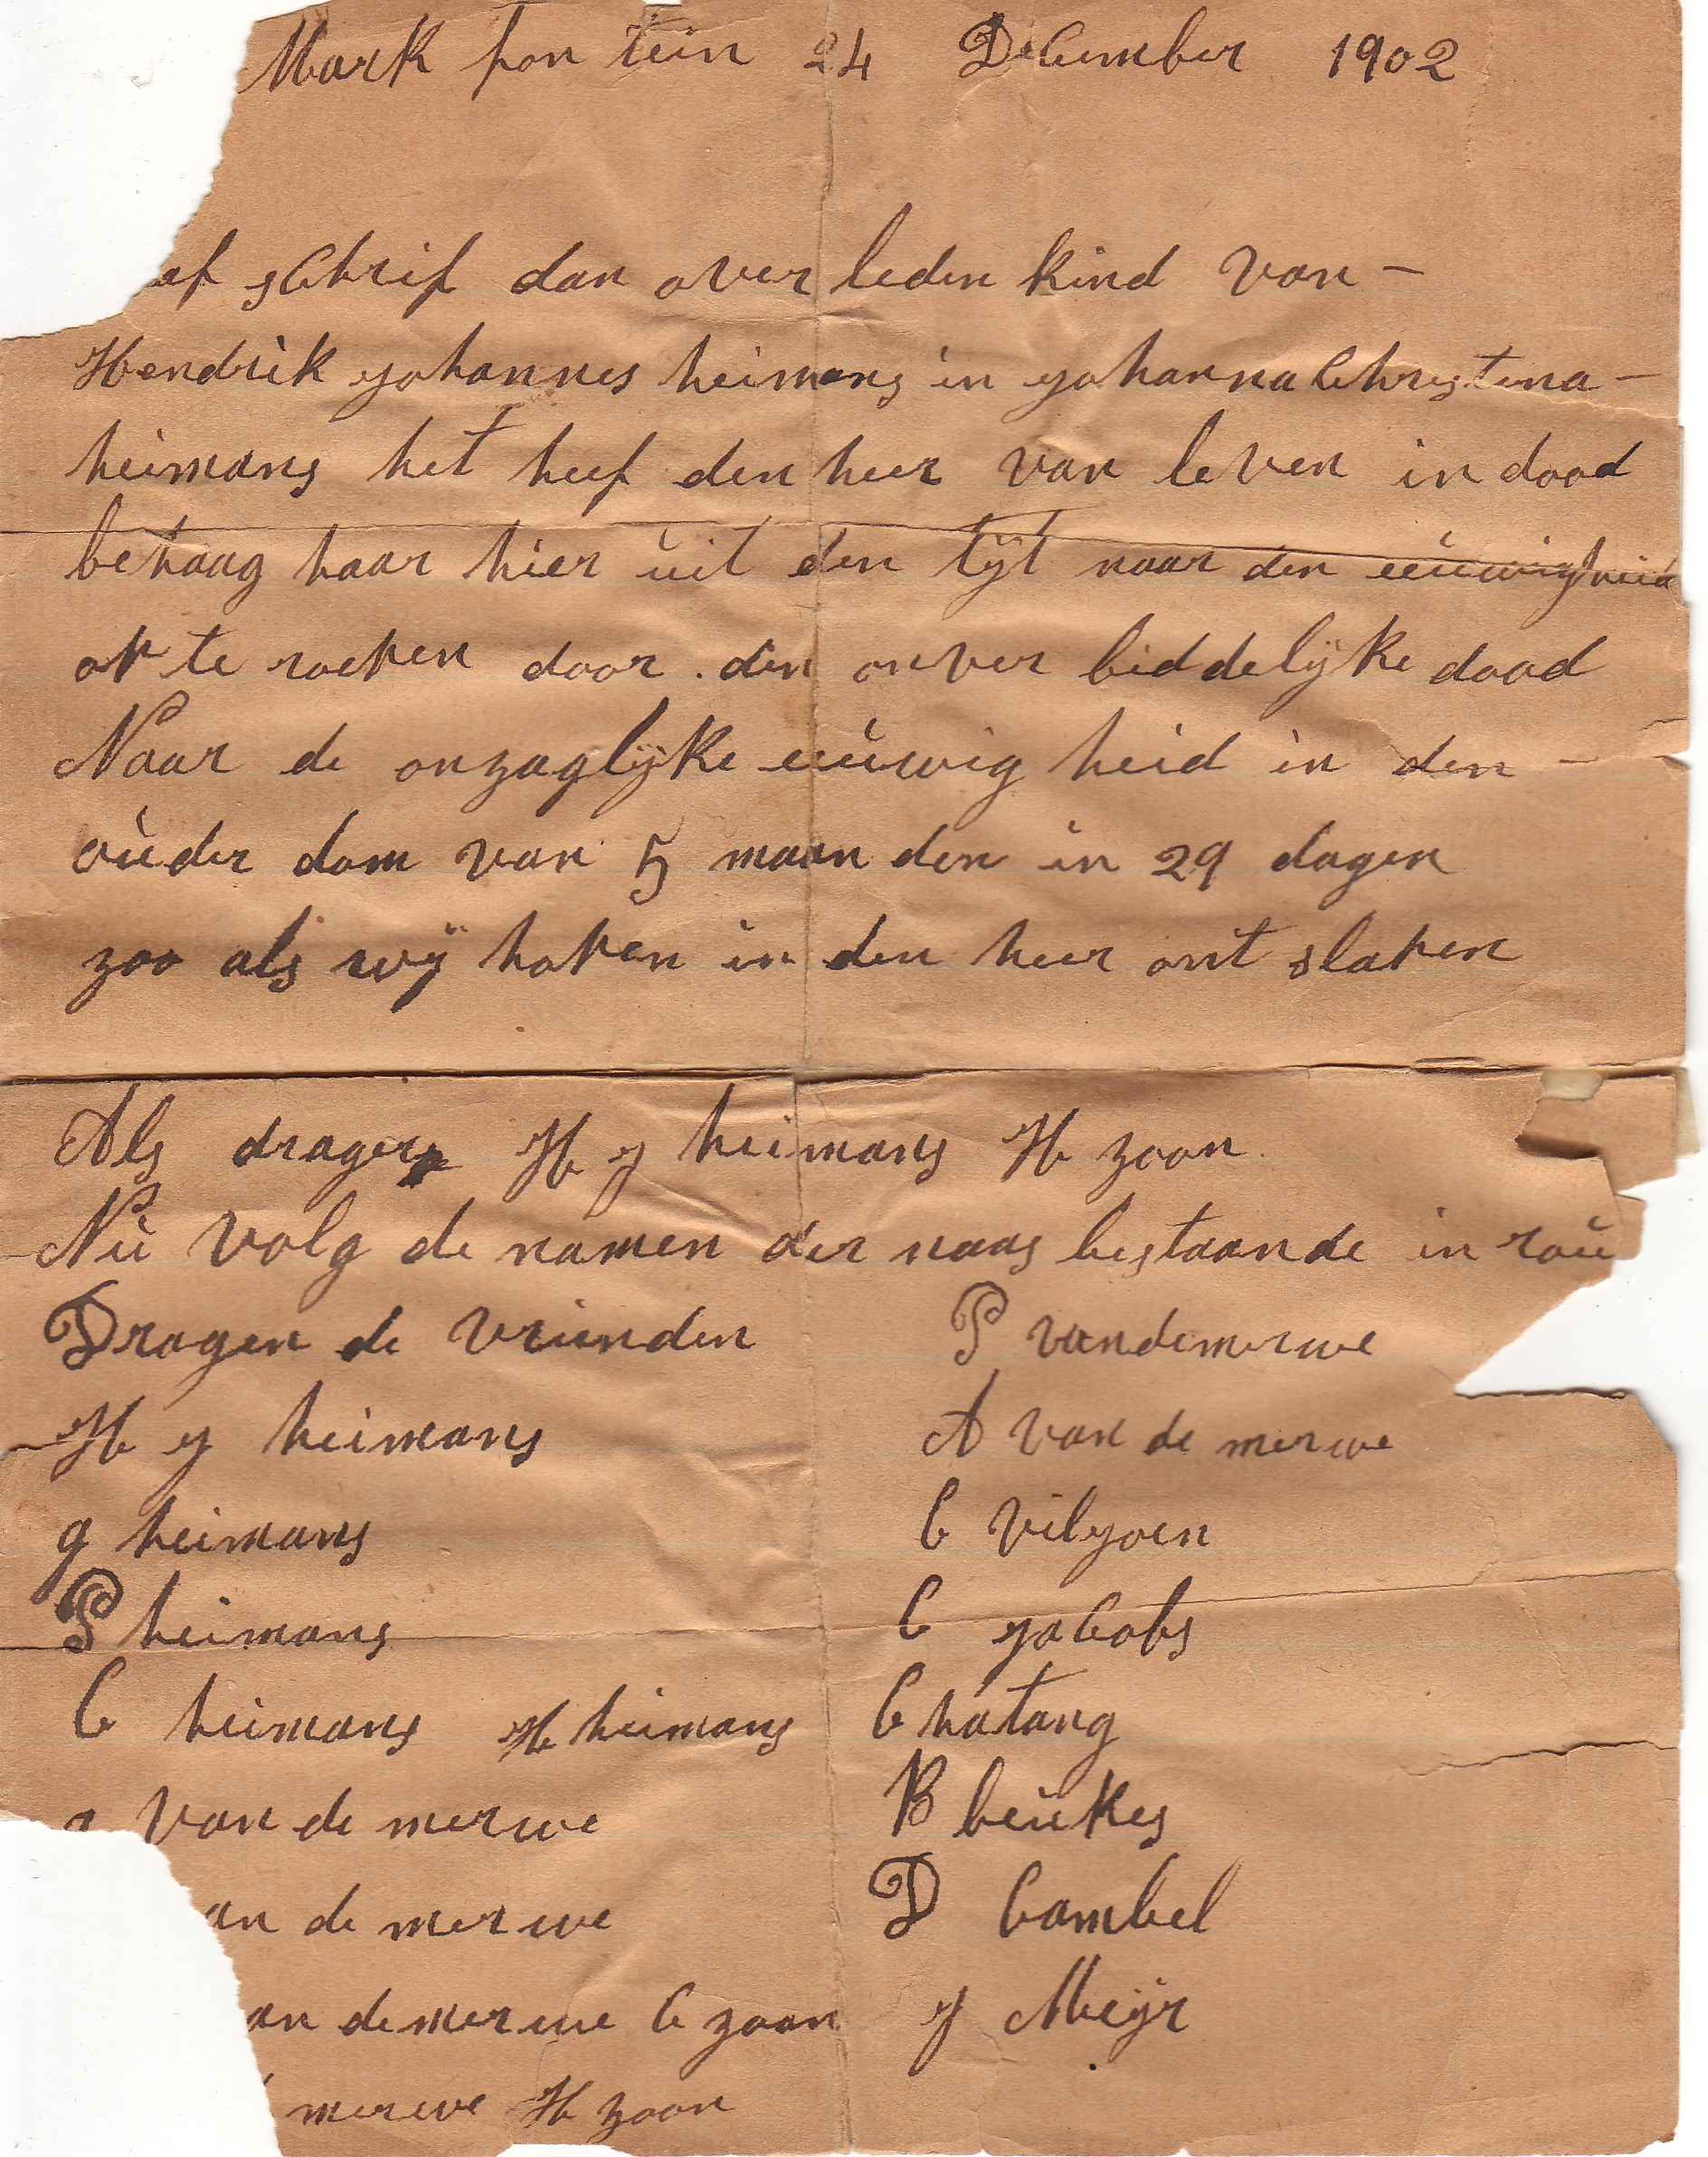 Mark fon tein 24 December 1902
ef schrif dan over leden kind van –
Hendrik yohannes heimans in yohanna Christena –
heimans het heef den heer van leven in dood
behaag haar hier uit den tijt naar den eeuwigheid
op te roepen door den onver biddelijke dood
Naar de onzaglijke eeuwig heid in den –
ouder dom van 5 maan den in 29 dagen
zoo als wij hopen in den heer ont slapen
Als dragers H y heimans H zoon
Nu volg de namen der naas bestaande in rou
Dragen de vrienden
H y heimans
g heimans
P heimans
C heimans H heimans
van de merwe
an de merwe
an de merwe C zoon
merwe H zoon
P van de merwe
A van de merwe
C vilyoen
C yacobs
C hatang
B beukes
D Cambel
y Meijr